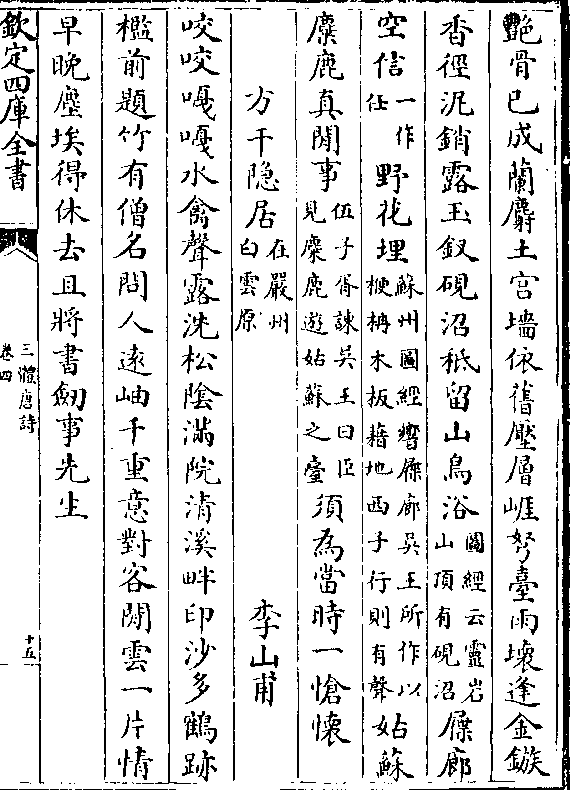 艷骨已成蘭麝土宫墻依舊壓層崕弩臺雨壞逢金鏃
香徑泥銷露玉釵硯沼秪留山鳥浴圖經云靈岩山頂有硯沼屧廊
空信一作任野花埋蘇州圖經響屧廊吴王所作以梗枬木板藉地西子行則有聲姑蘇
麋鹿真閒事伍子胥諫吴王曰臣見麋鹿遊姑蘇之臺須為當時一愴懷
方干隐居在嚴州白雲原 李山甫
咬咬嘎嘎水禽聲露洗松陰滿院清溪畔印沙多鶴跡
檻前題竹有僧名問人逺岫千重意對客閒雲一片情
早晩塵埃得休去且將書劒事先生
欽定四庫全書
三體唐詩
卷四
十五